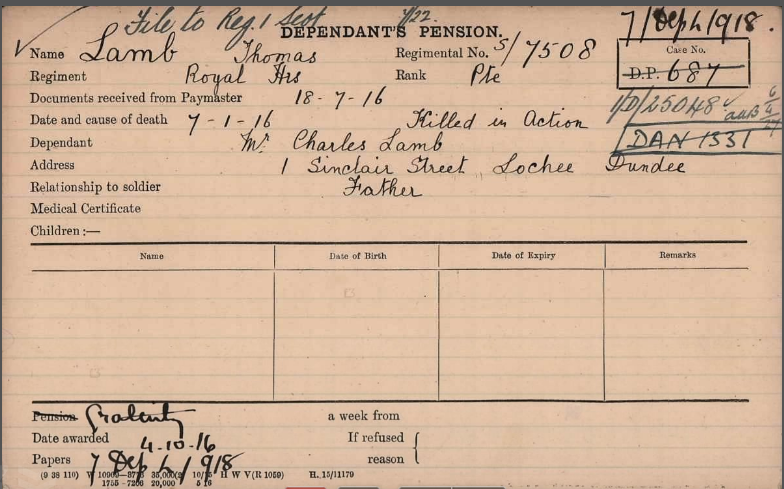 File to Reg. 1 Sept 7/22.
DEPENDANT'S PENSION. 7/Dep L/918.
Name Lamb Thomas Regimental No. S/7508 Case No.
Regiment Royal Hrs Rank Pte D.P. 687
Documents received from Paymaster 18-7-16 1/D/25048
Date and cause of death 7-1-16 Killed in Action
Dependant Mr Charles Lamb DAN 1331
Address 1 Sinclair Street, Lochee Dundee
Relationship to soldier Father
Medical Certificate
Children:—
Name Date of Birth Date of Expiry Remarks
Pension Gratuity a week from
Date awarded 4-10-16 If refused
Papers 7 Dep L/918 reason
H W V(R 1059) H. 15/11179